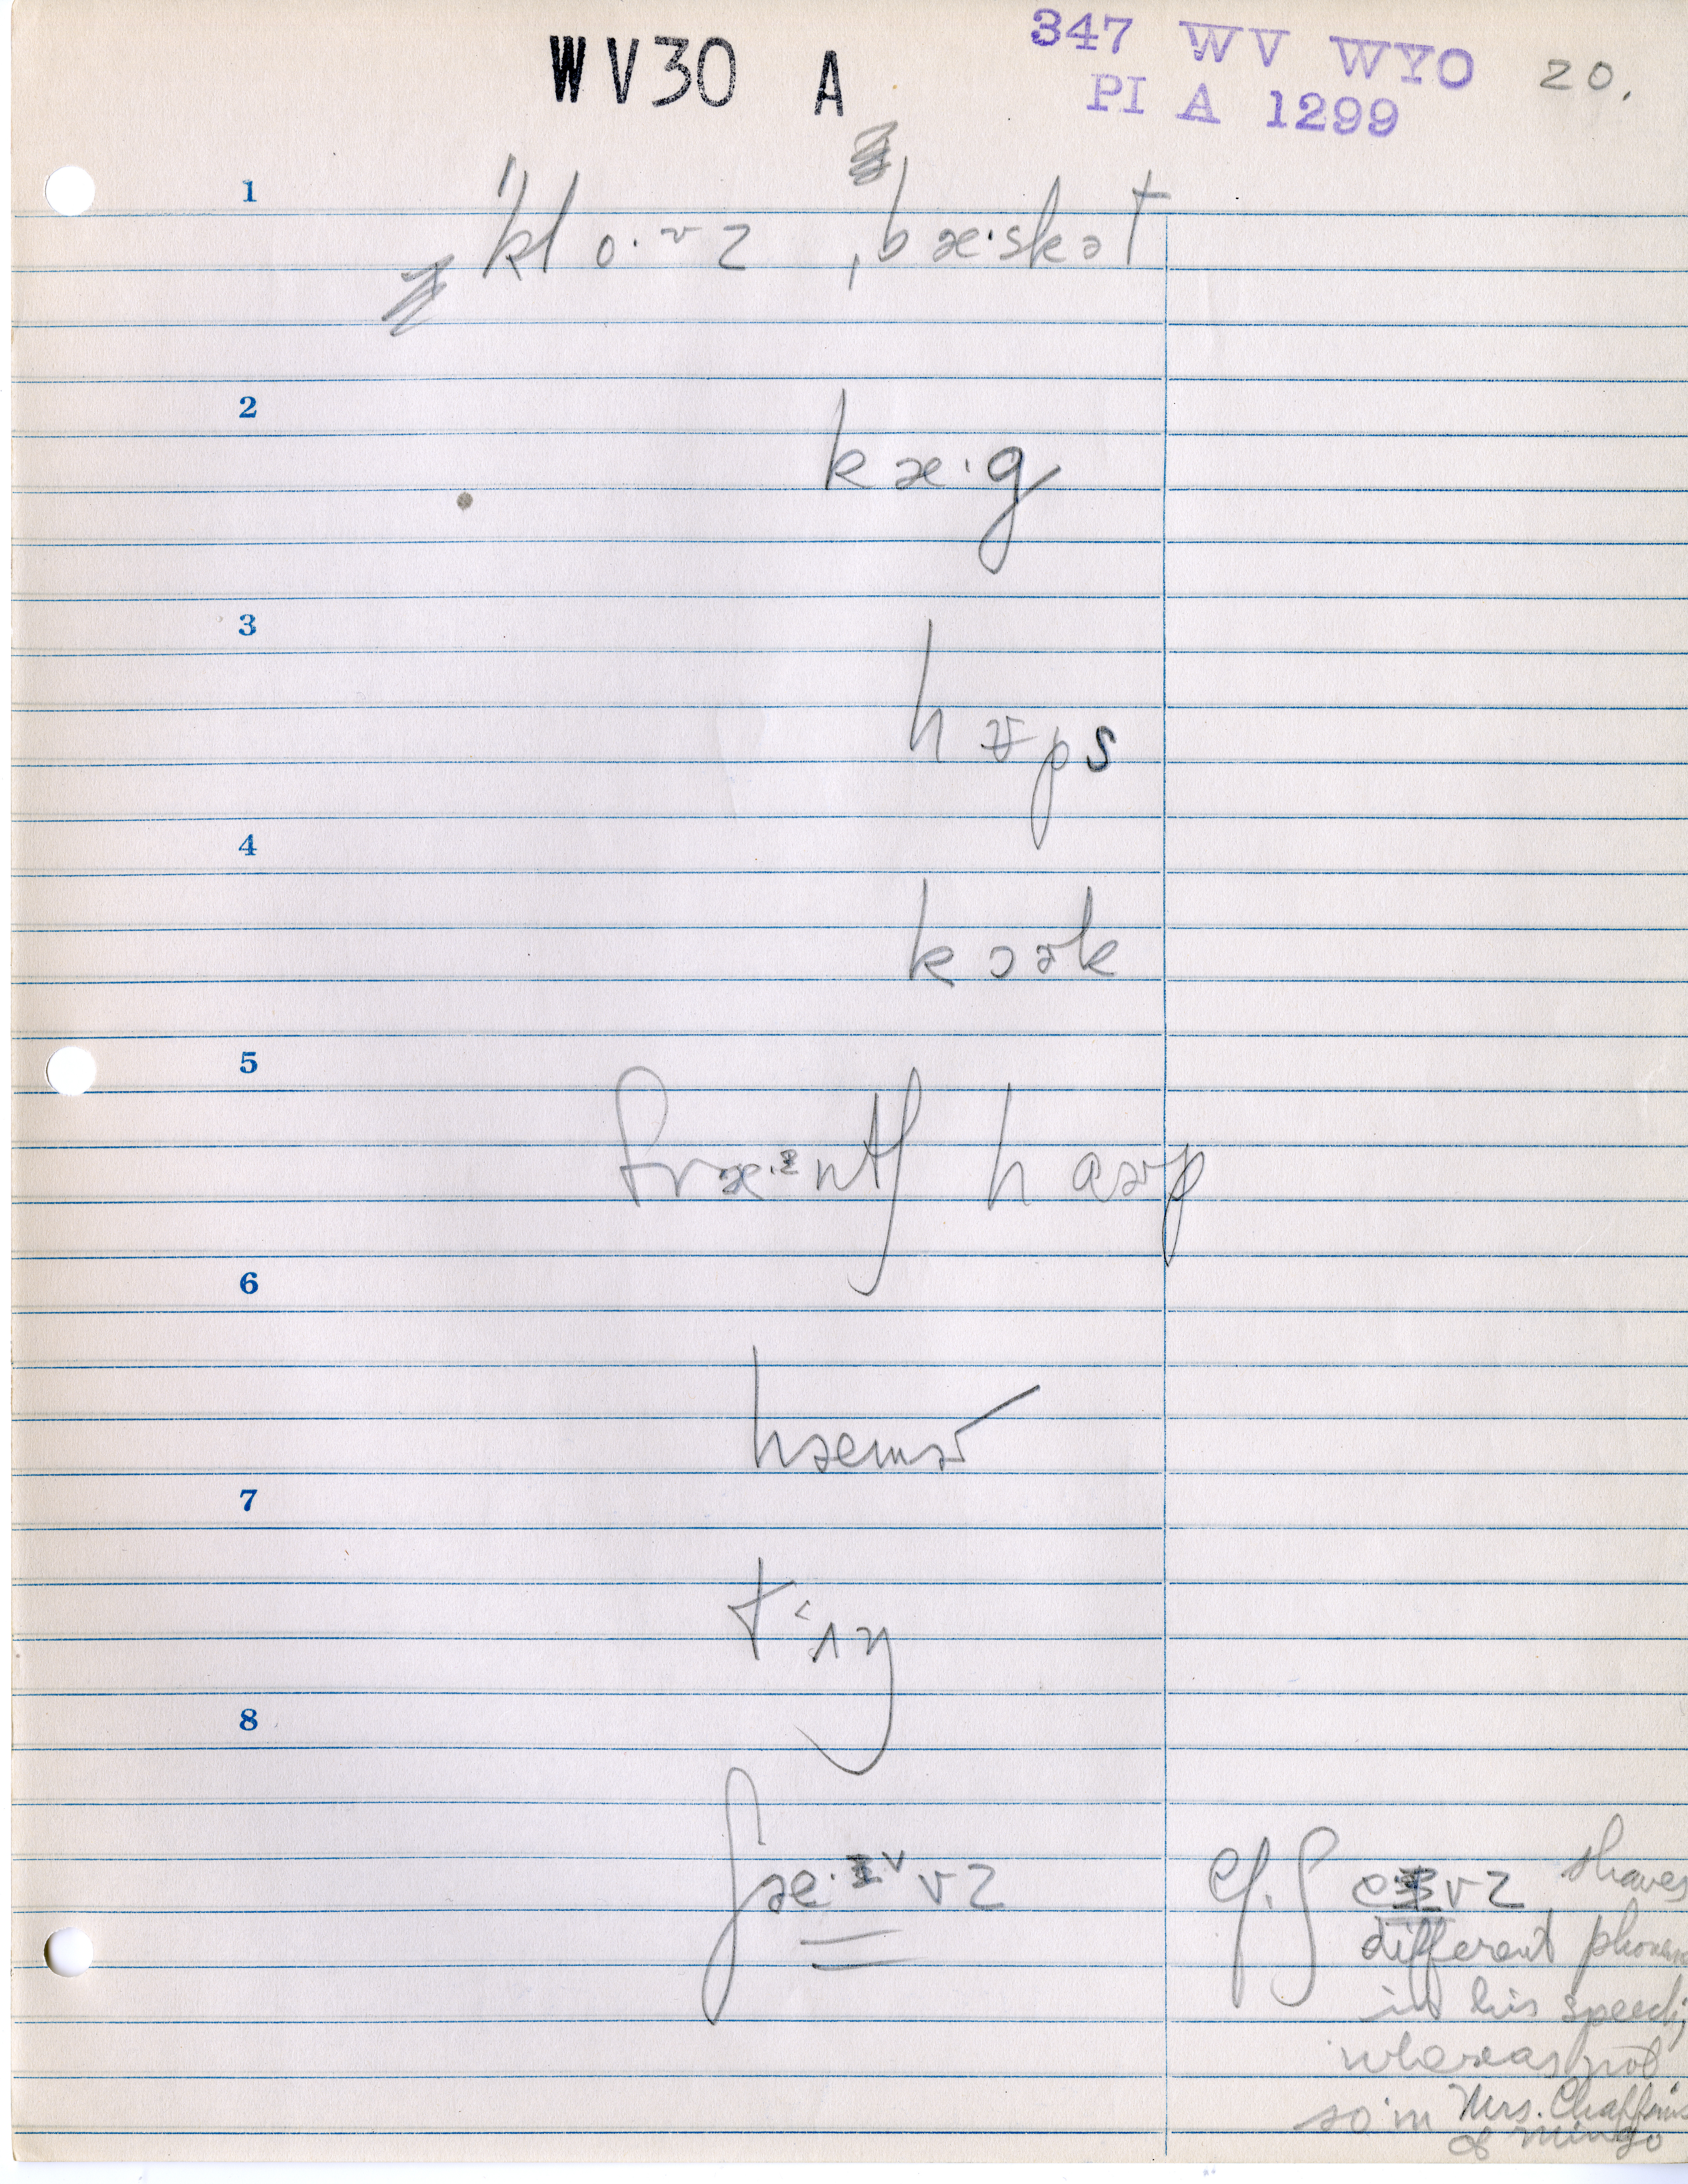 WV30 A
347 WV WYO
PI A 1299
20.
1
ˈklo·ᴠz ˌbæ·skət
2
kæ·g
3
hʊps
4
kɔɚk
5
fræ·ᶻntʃ hɑɚp
6
hæmɚ
7
tʌŋ
8
ʃæ·ɪᵛvz
cf. ʃeɪvz shaves
different phoneme
in his speech;
whereas not
so in Mrs. Chaffins
of Mingo